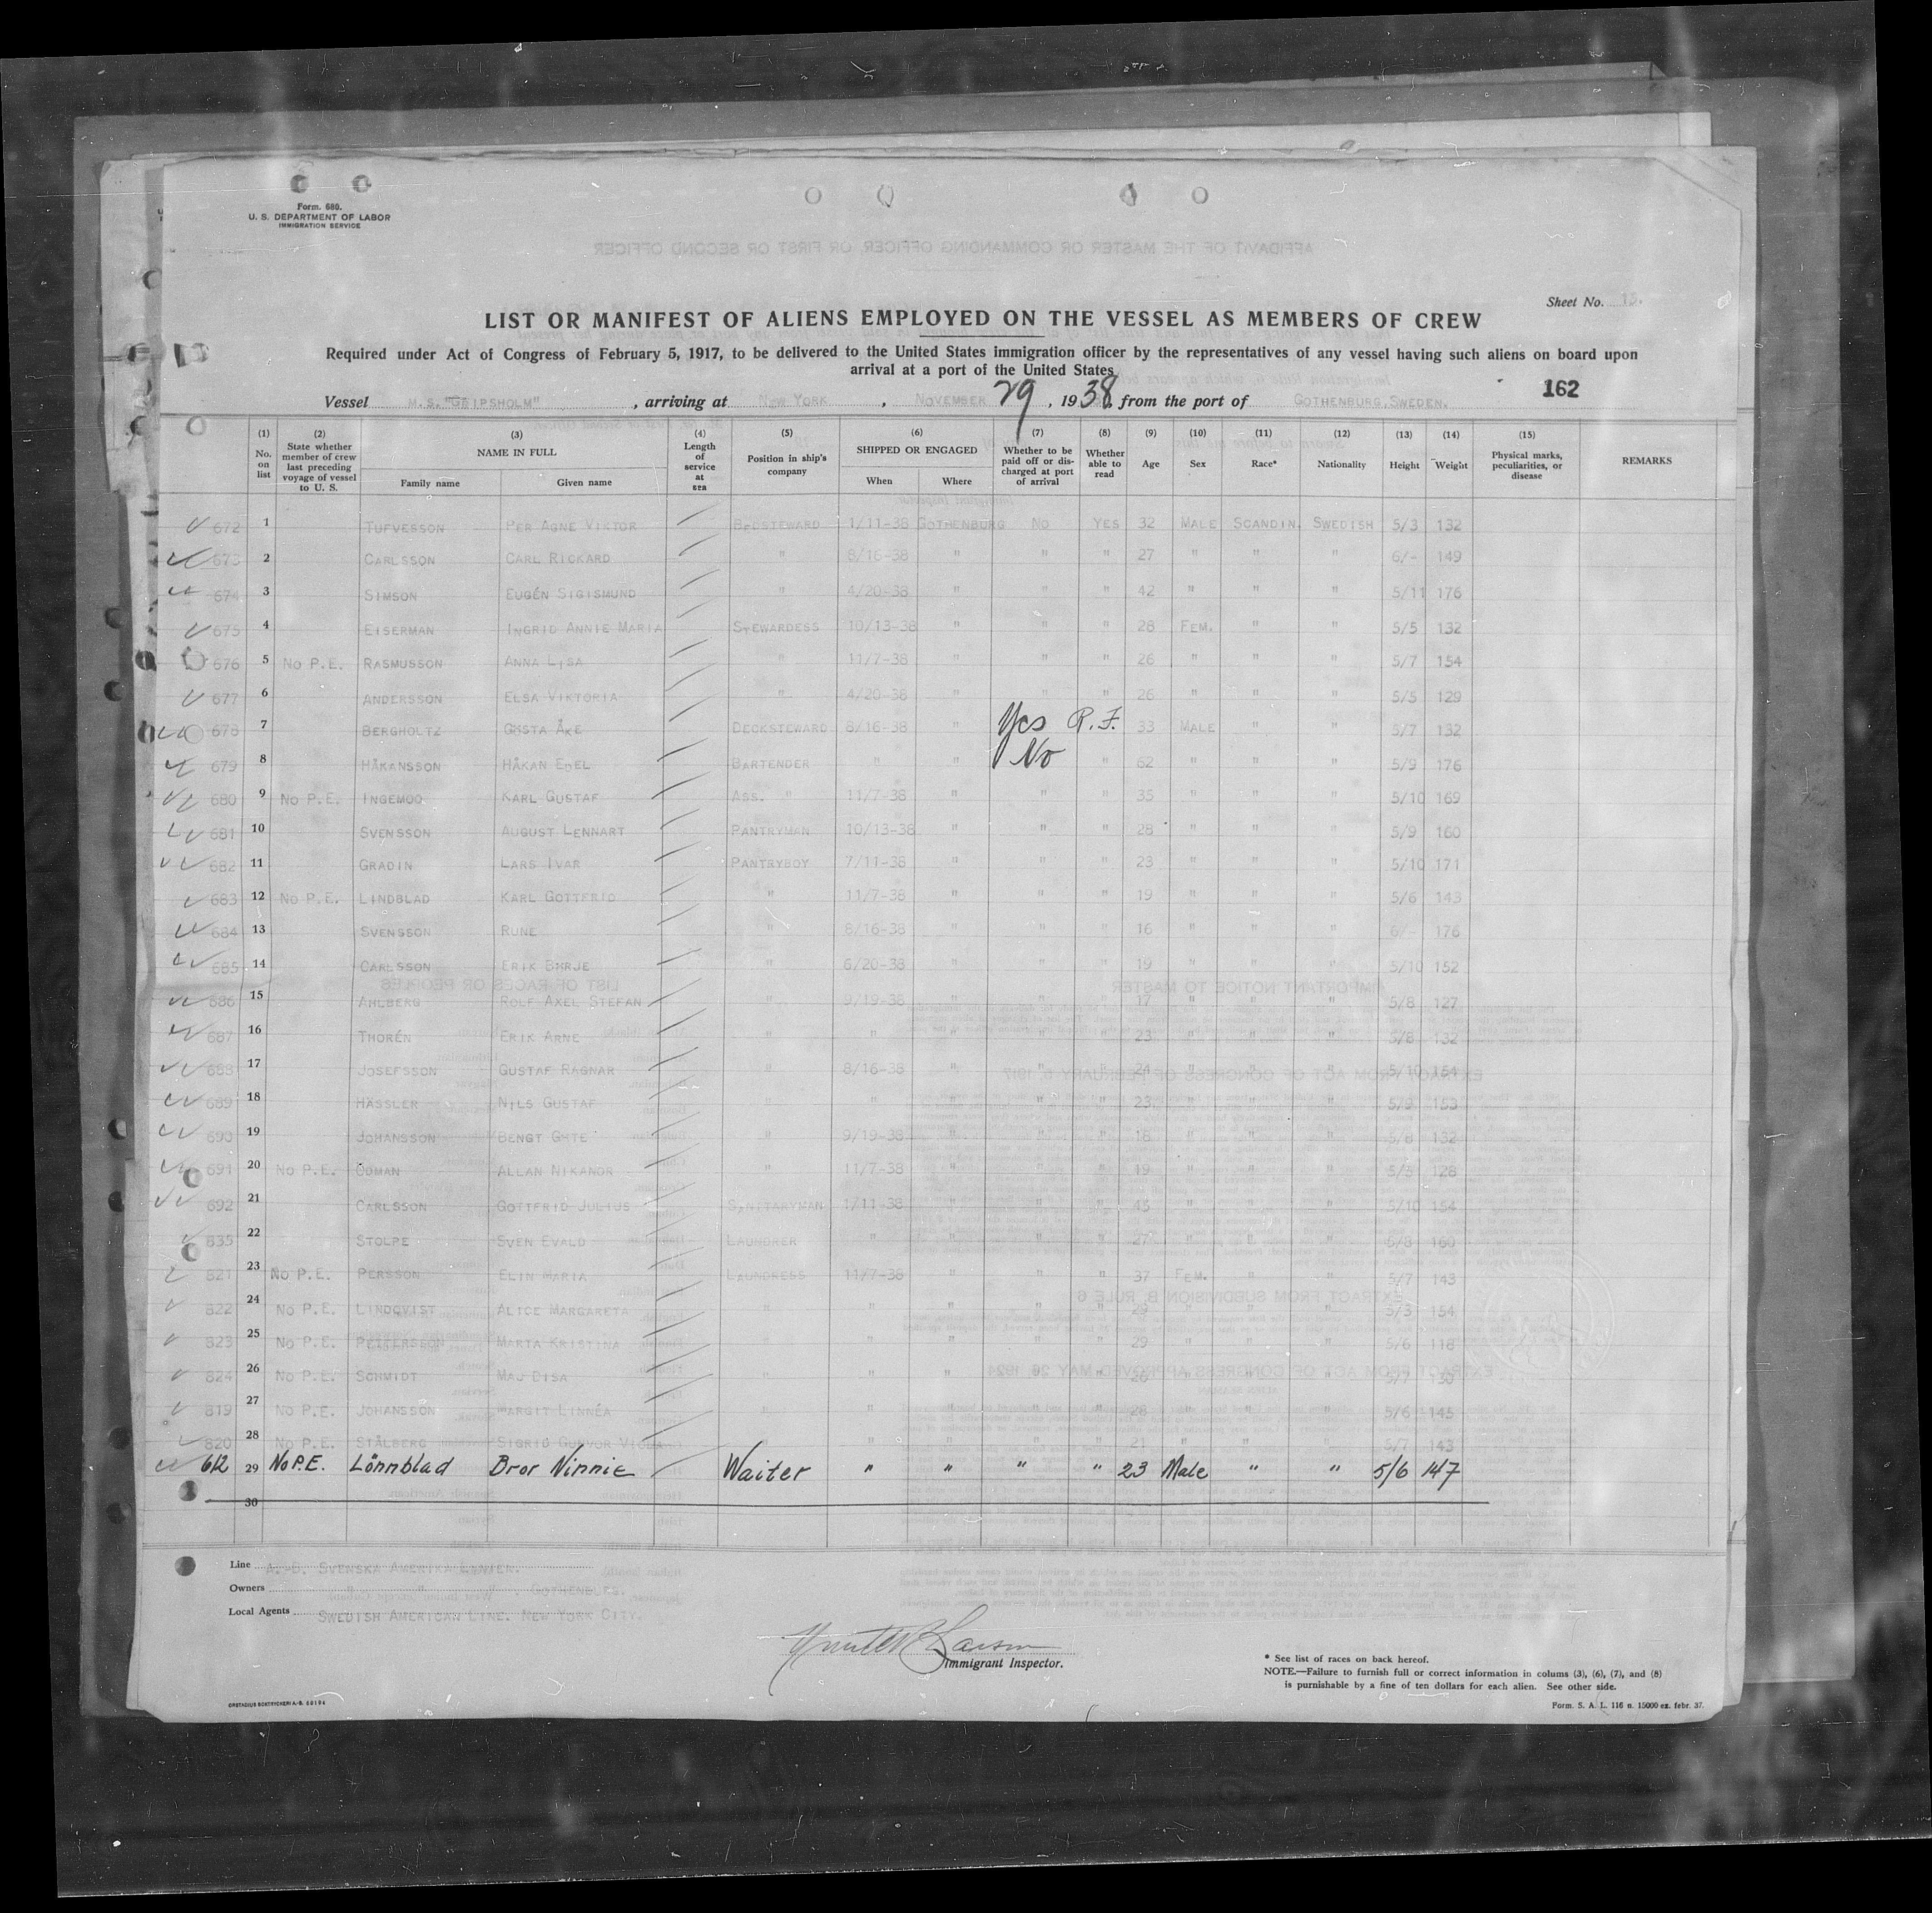 Form. 680.
U. S. DEPARTMENT OF LABOR
IMMIGRATION SERVICE
AFFIDAVIT OF THE MASTER OR COMMANDING OFFICER, OR FIRST OR SECOND OFFICER
Sheet No. 13.
LIST OR MANIFEST OF ALIENS EMPLOYED ON THE VESSEL AS MEMBERS OF CREW
Required under Act of Congress of February 5, 1917, to be delivered to the United States immigration officer by the representatives of any vessel having such aliens on board upon
arrival at a port of the United States
162
Vessel M.S. "GRIPSHOLM", arriving at NEW YORK, NOVEMBER 29, 1938, from the port of GOTHENBURG, SWEDEN.
(1) No. on list (2) State whether member of crew last preceding voyage of vessel to U. S. (3) NAME IN FULL Family name Given name (4) Length of service at sea (5) Position in ship's company (6) SHIPPED OR ENGAGED When Where (7) Whether to be paid off or discharged at port of arrival (8) Whether able to read (9) Age (10) Sex (11) Race* (12) Nationality (13) Height (14) Weight (15) Physical marks, peculiarities, or disease REMARKS
672 1 TUFVESSON PER AGNE VIKTOR BEDSTEWARD 1/11-38 GOTHENBURG NO YES 32 MALE SCANDIN. SWEDISH 5/3 132
673 2 CARLSSON CARL RICKARD " 8/16-38 " " " 27 " " " 6/- 149
674 3 SIMSON EUGÉN SIGISMUND " 4/20-38 " " " 42 " " " 5/11 176
675 4 EISERMAN INGRID ANNIE MARIA STEWARDESS 10/13-38 " " " 28 FEM. " " 5/5 132
676 5 NO P.E. RASMUSSON ANNA LISA " 11/7-38 " " " 26 " " " 5/7 154
677 6 ANDERSSON ELSA VIKTORIA " 4/20-38 " " " 26 " " " 5/5 129
678 7 BERGHOLTZ GÖSTA ÅKE DECKSTEWARD 8/16-38 " Yes R.F. 33 MALE " " 5/7 132
679 8 HÅKANSSON HÅKAN EDEL BARTENDER " " No " 62 " " " 5/9 176
680 9 NO P.E. INGEMOO KARL GUSTAF ASS. " 11/7-38 " " " 35 " " " 5/10 169
681 10 SVENSSON AUGUST LENNART PANTRYMAN 10/13-38 " " " 28 " " " 5/9 160
682 11 GRADIN LARS IVAR PANTRYBOY 7/11-38 " " " 23 " " " 5/10 171
683 12 NO P.E. LINDBLAD KARL GOTTFRID " 11/7-38 " " " 19 " " " 5/6 143
684 13 SVENSSON RUNE " 8/16-38 " " " 16 " " " 6/- 176
685 14 CARLSSON ERIK BÖRJE " 6/20-38 " " " 19 " " " 5/10 152
686 15 AHLBERG ROLF AXEL STEFAN " 9/19-38 " " " 17 " " " 5/8 127
687 16 THORÉN ERIK ARNE " " " " " 23 " " " 5/8 132
688 17 JOSEFSSON GUSTAF RAGNAR " 8/16-38 " " " 24 " " " 5/10 154
689 18 HÄSSLER NILS GUSTAF " " " " " 23 " " " 5/9 153
690 19 JOHANSSON BENGT GÖTE " 9/19-38 " " " 18 " " " 5/8 132
691 20 NO P.E. ÖDMAN ALLAN NIKANOR " 11/7-38 " " " 19 " " " 5/3 128
692 21 CARLSSON GOTTFRID JULIUS SANITARYMAN 1/11-38 " " " 45 " " " 5/10 154
835 22 STOLPE SVEN EVALD LAUNDRER " " " " 27 " " " 5/8 160
821 23 NO P.E. PERSSON ELIN MARIA LAUNDRESS 11/7-38 " " " 37 FEM. " " 5/7 143
822 24 NO P.E. LINDQVIST ALICE MARGARETA " " " " " 29 " " " 5/3 154
823 25 NO P.E. PETTERSSON MARTA KRISTINA " " " " " 29 " " " 5/6 118
824 26 NO P.E. SCHMIDT MAJ DISA " " " " " 26 " " " 5/7 130
819 27 NO P.E. JOHANSSON MARGIT LINNÉA " " " " " 28 " " " 5/6 145
820 28 NO P.E. STÅLBERG SIGRID GUNVOR VIOLA " " " " " 21 " " " 5/7 143
612 29 No P.E. Lönnblad Bror Ninnie Waiter " " " " 23 Male " " 5/6 147
30
Line A.-B. SVENSKA AMERIKA LINIEN.
Owners " " " , GOTHENBURG.
Local Agents SWEDISH AMERICAN LINE. NEW YORK CITY.
Immigrant Inspector.
* See list of races on back hereof.
NOTE.—Failure to furnish full or correct information in colums (3), (6), (7), and (8)
is purnishable by a fine of ten dollars for each alien. See other side.
Form. S. A. L. 116 n. 15000 ex. febr. 37.